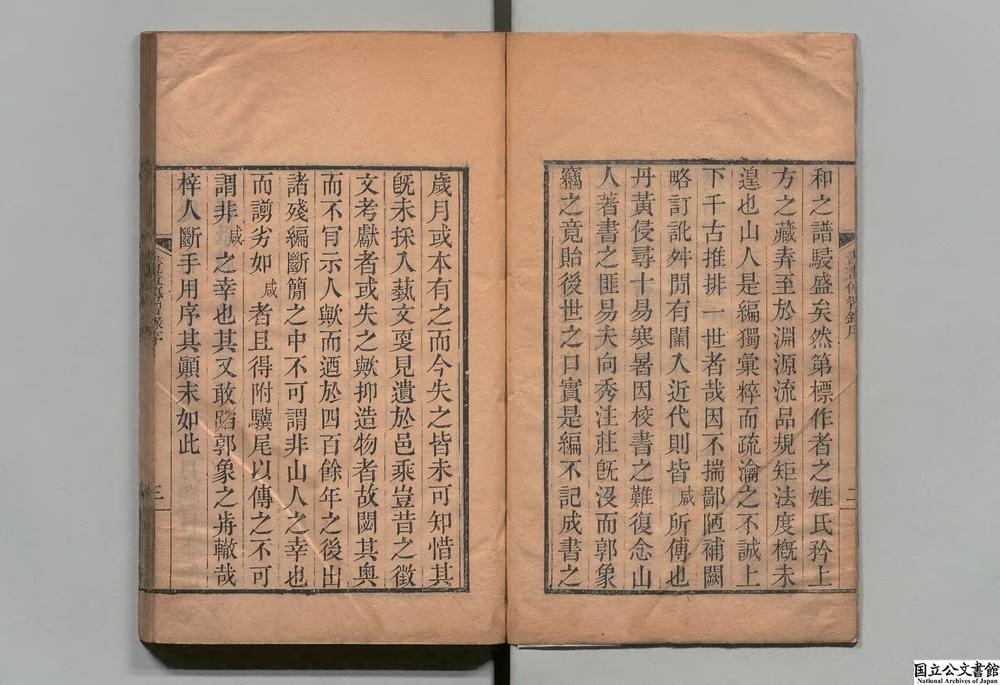 和之譜駸盛矣然第標作者之姓氏矜上
方之藏弆至於淵源流品規矩法度概未
遑也山人是編獨彙粹而疏瀹之不誠上
下千古推排一世者哉因不揣鄙陋補闕
略訂訛舛閒有闌入近代則皆咸所傅也
丹黃侵尋十易寒暑因校書之難復念山
人著書之匪易夫向秀注莊旣沒而郭象
竊之竟貽後世之口實是編不記成書之
歲月或本有之而今失之皆未可知惜其
旣未採入藝文㪅見遺於邑乘豈昔之徵
文考獻者或失之歟抑造物者故閟其奧
而不肎示人歟而迺於四百餘年之後出
諸殘編斷簡之中不可謂非山人之幸也
而謭劣如咸者且得附驥尾以傳之不可
謂非咸之幸也其又敢蹈郭象之歬轍哉
梓人斷手用序其顚末如此
三
国立公文書館
National Archives of Japan